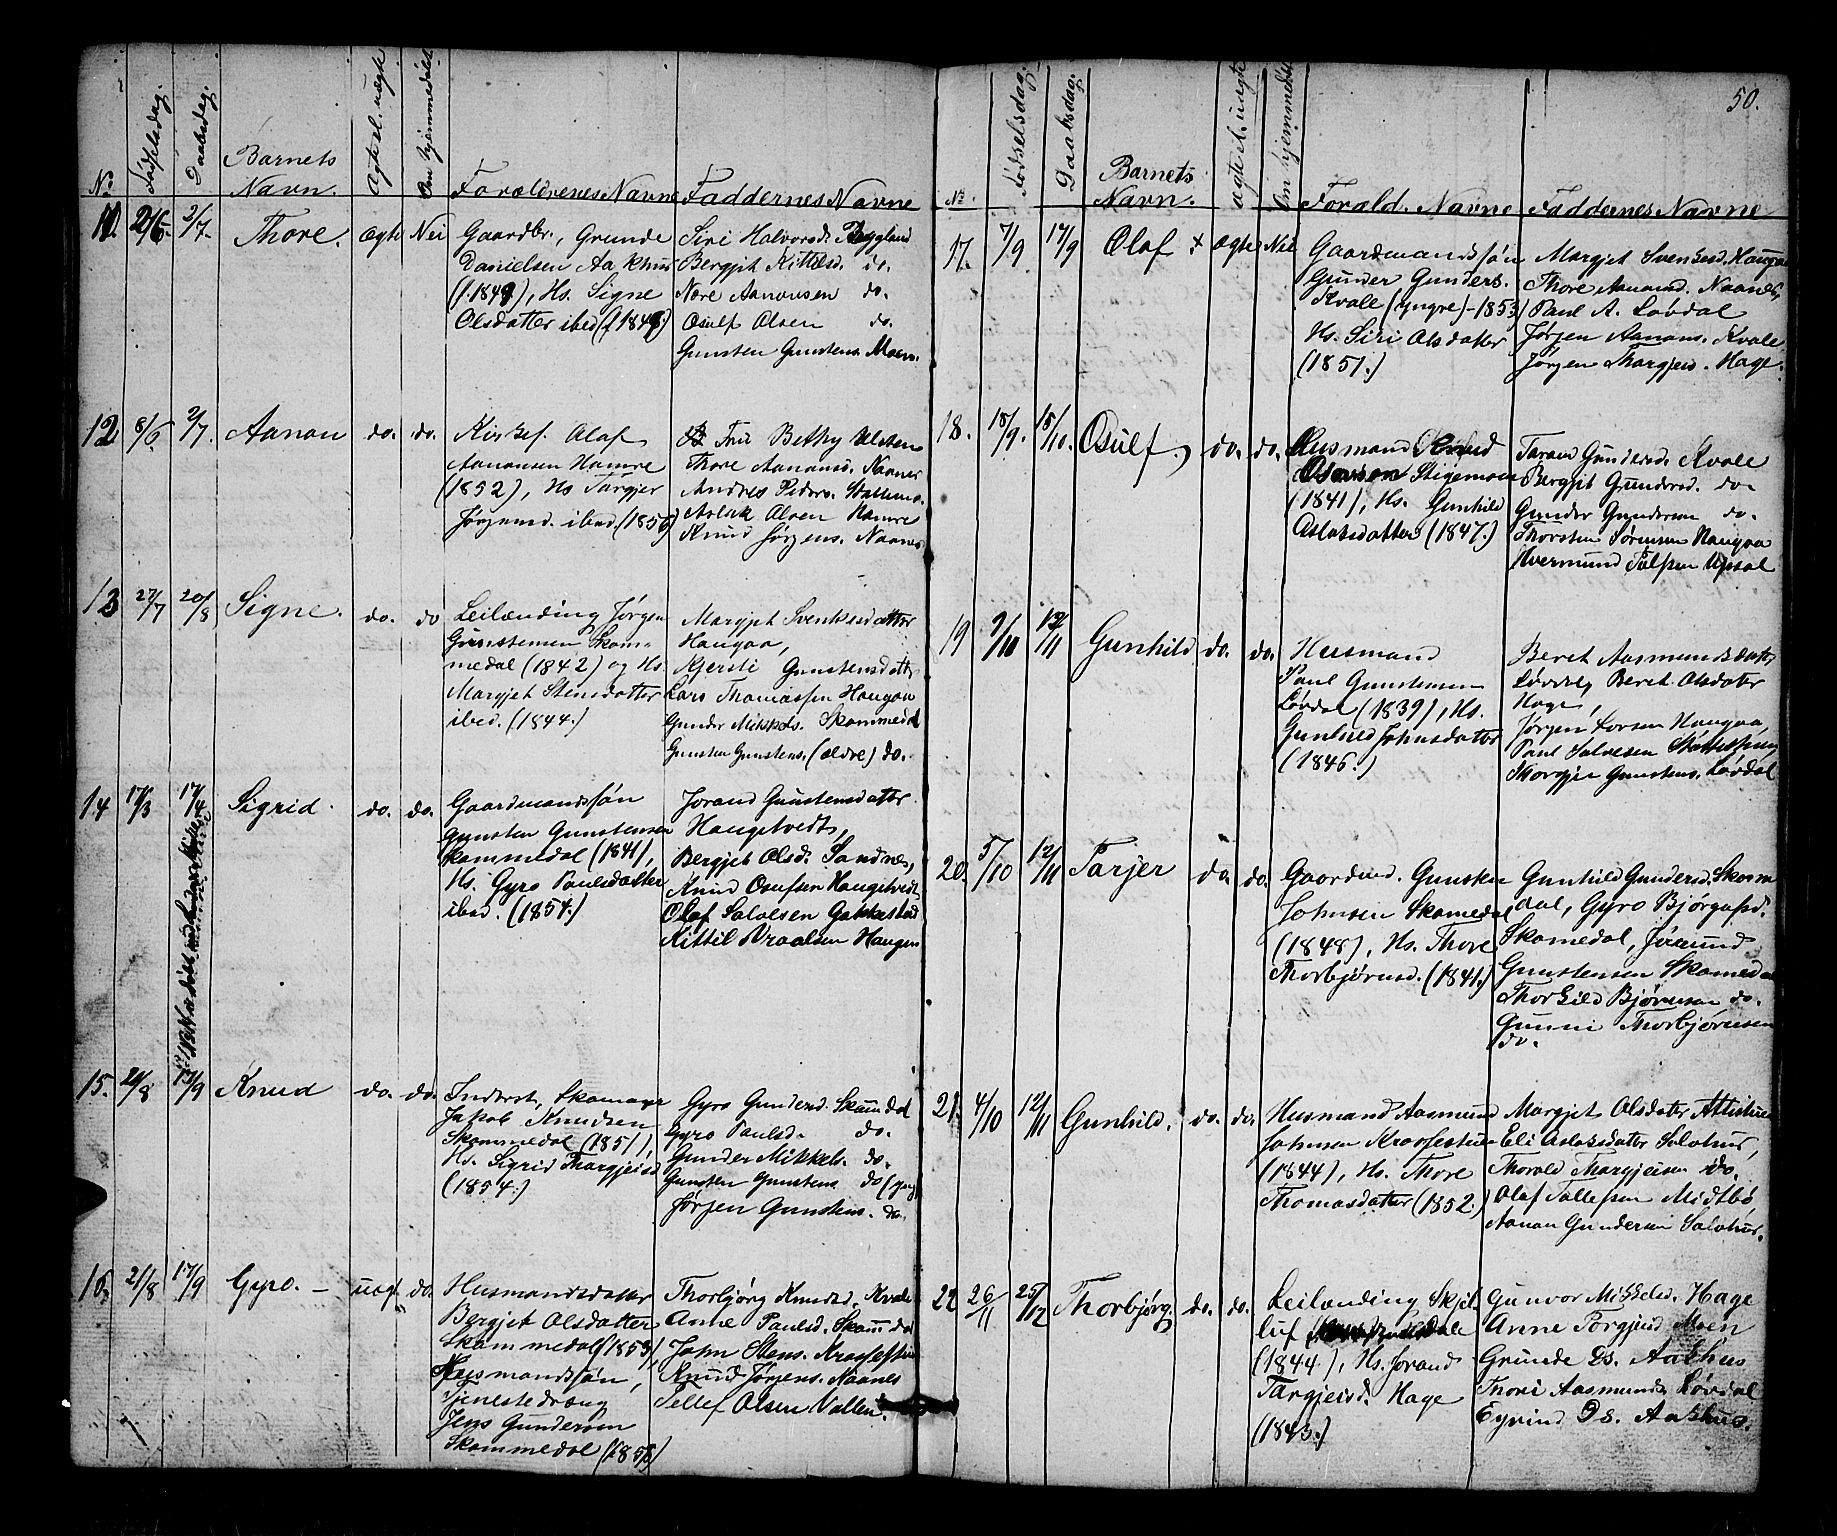 No.
Fødselsdag.
Daabsdag.
Barnets
Navn.
Ægte el. uægte
Om hjemmedøbt
Forældrenes Navne
Faddernes Navne
11. 2/6. 2/7. Thore. ægte Nei
Gaardbr., Grunde
Danielsen Aakhus
(f. 1849), Hs. Signe
Olsdatter ibed (f. 1848)
Siri Halvorsd. Bygland
Bergjit Kittelsd. do.
Nære Aanonsen do.
Osulf Olsen do.
Gunsten Gunstens. Moen.
12 8/6 2/7. Aanon do. do.
Olaf
Aanonsen Hamre
(1852), Hs Targjer
Jørgensd. ibed. (1856)
Frk Bethy
Thore Aanonsd. Naanes
Andres Peders.
Aslak Olsen Hamre
Knud Jørgens. Naanes
13 27/7 20/8 Signe. do. do
Leilænding Jørgen
Gunstensen Skom-
medal (1842) og Hs.
Margjet Stensdatter
ibed. (1844.)
Margjet Svenksdatter
Haugaa,
Kjersti Gunstensdatt.
Lars Thomassen Haugaa
Gunder Mikkels. Skommedal
Gunsten Gunstens. (ældre) do.
14 17/3 17/4 Sigrid. do. do.
Gaardmandssøn
Gunsten Gunstensen
Skommedal (1841),
Hs. Gyro Paulsdatter
ibed. (1854.)
Jorand Gunstensdatter
Haugetvedt,
Bergjet Olsd. Sandnes,
Knud Osufsen Haugetvedt
Olaf Salvesen
Kittil Vraalsen Haugen
15. 20/8 17/9 Knud do. do.
Inderst, Skomager
Jakob Knudsen
Skommedal (1851),
Hs. Sigrid Thargjeisd
(1854.)
Gyro Gundersd. Skommdal
Gyro Paulsd. do.
Gunder Mikkels. do.
Gunsten Gunstens do (yng.
Jørgen Gunstens. do.
16. 21/8 17/9 Gyro. — uægt. do.
Husmandsdatter
Bergjet Olsdatter
Skommedal (1853)
Husmandssøn,
Tjenestedreng
Jens Gundersen
Skommedal (1858)
Thorbjørg Knudsd. Kvale
Anne Paulsd. Skommdal
John Stens.
Knud Jørgens. Naanes
Tellef Olsen Vallen.
50.
No.
Fødselsdag.
Daabsdag.
Barnets
Navn.
ægte el. uægte
Om hjemmedøbt
Foræld. Navne
Faddernes Navne
17. 7/9 17/9 Olaf + ægte Nei
Gaardmandssøn
Gunder Gunders.
Kvale (yngre)-1853)
Hs. Siri Olsdatter
(1851.)
Margjet Svenksd. Haugaa
Thore Aanonsd. Naanes,
Paul A. Løvdal
Jørgen Aanons. Kvale
Jørgen Thargjeis. Hage.
18. 18/9. 15/10. Osulf, do. do.
Husmand
Stigemoen
(1841), Hs. Gunhild
Aslaksdatter (1847.)
Taran Gundersd. Kvale
Bergjit Gundersd. do.
Gunder Gundersen do.
Thorsten Sørensen Haugaa
Hvermund Tellefsen Upsal
19 9/10 12/11 Gunhild do. do.
Husmand
Paul Gunstensen
Løvdal (1839), Hs.
Gunhild Johnsdatter
(1846.)
Beret Aasmundsdatter
Løvdal, Beret Olsdater
Hage,
Jørgen Larsen Haugaa,
Paul Salvesen
Thorgjer Gunstens. Løvdal
20. 5/10 12/11 Tarjer do. do.
Gaardmd. Gunsten
Johnsen Skomedal
(1848), Hs. Thore
Thorbjørnsd. (1841.)
Gunhild Gundersd. Skom
dal, Gyro Bjørgufsd.
Skomedal,
Gunstensen Skomedal
Thorkild Bjørnsen do.
Gunni Thorbjørnsen
do.
21. 4/10 12/11 Gunhild. do. do.
Husmand Aasmund
Johnsen
(1844), Hs. Thore
Thomasdatter (1852.)
Margjet Olsdater
Eli Aslaksdatter Solvhus,
Thorald Thargjeisen do.
Olaf Tallefsen Midtbø
Aanon Gundersen Solvhus.
22 26/11 25/12 Thorbjørg. do. do.
Leilænding Skjel
luf
(1844), Hs. Jorand
Targjeisd. Hage
(1843.)
Gunvor Mikkelsd. Hage
Anne Torgjeisd Moen
Grunde Ds. Aakhus
Thori Aasmunds. Løvdal
Eyvind Ds. Aakhus.